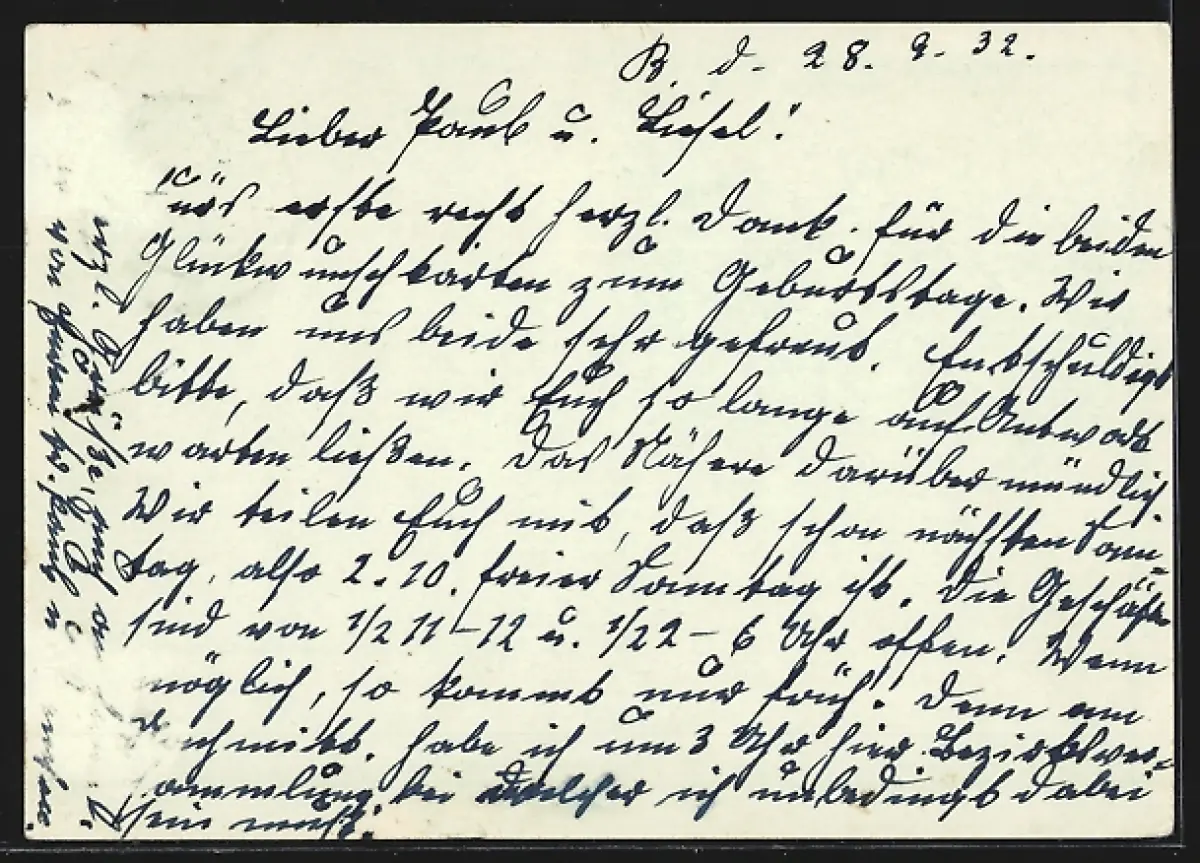 B. d. 28. 9. 32.
Lieber Paul u. Liesel!
Fürs erste recht herzl. Dank für die beiden
Glückwunschkarten zum Geburtstage. Wir
haben uns beide sehr gefreut. Entschuldigt
bitte, daß wir Euch so lange auf Antwort
warten ließen. Das Nähere darüber mündlich.
Wir teilen Euch mit, daß schon nächsten Sonn-
tag, also 2.10. freier Sonntag ist. Die Geschäfte
sind von 1/2 11 – 12 u. 1/2 2 – 6 Uhr offen. Wenn
möglich, so kommt nur früh. Denn am
Nachmitt. habe ich um 3 Uhr hier Bezirksver-
sammlung, bei welcher ich unbedingt dabei
sein muß.
Herzl. Grüße, auch an
von Eurem